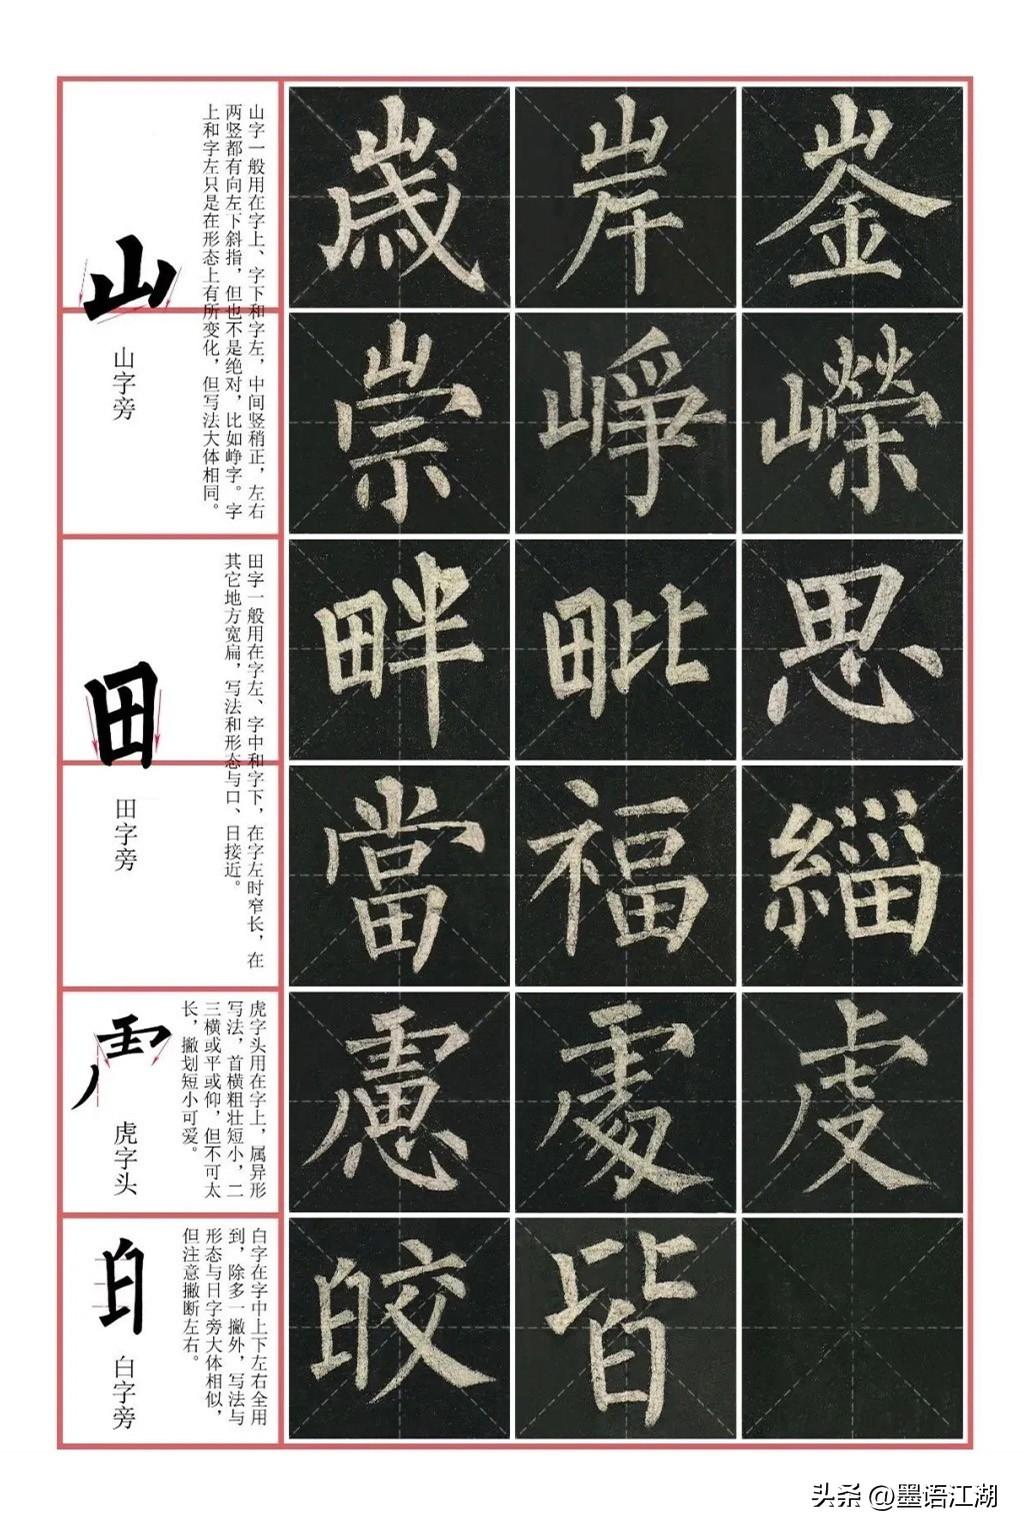 山字一般用在字上、字下和字左，中间竖稍正，左右
两竖都有向左下斜指，但也不是绝对，比如峥字。字
上和字左只是在形态上有所变化，但写法大体相同。
山
山字旁
歳 岸 崟
崇 崢 嶸
田字一般用在字左、字中和字下，在字左时窄长，在
其它地方宽扁，写法和形态与口、日接近。
田
田字旁
畔 毗 思
當 福 緇
虎字头用在字上，属异形
写法，首横粗壮短小，二
三横或平或仰，但不可太
长，撇划短小可爱。
虎字头
慮 處 虔
白字在字中上下左右全用
到，除多一撇外，写法与
形态与日字旁大体相似，
但注意撇断左右。
白
白字旁
皎 皆
头条 @墨语江湖